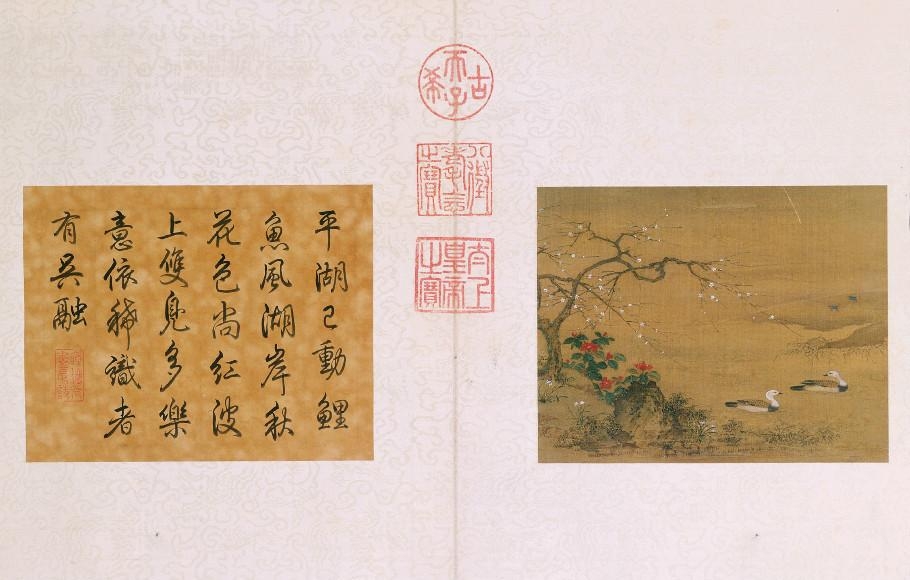 平湖已動鯉
魚風湖岸秋
花色尚紅波
上雙鳧多樂
意依稀識者
有吳融
古希天子
八徵耄念之寶
太上皇帝之寶